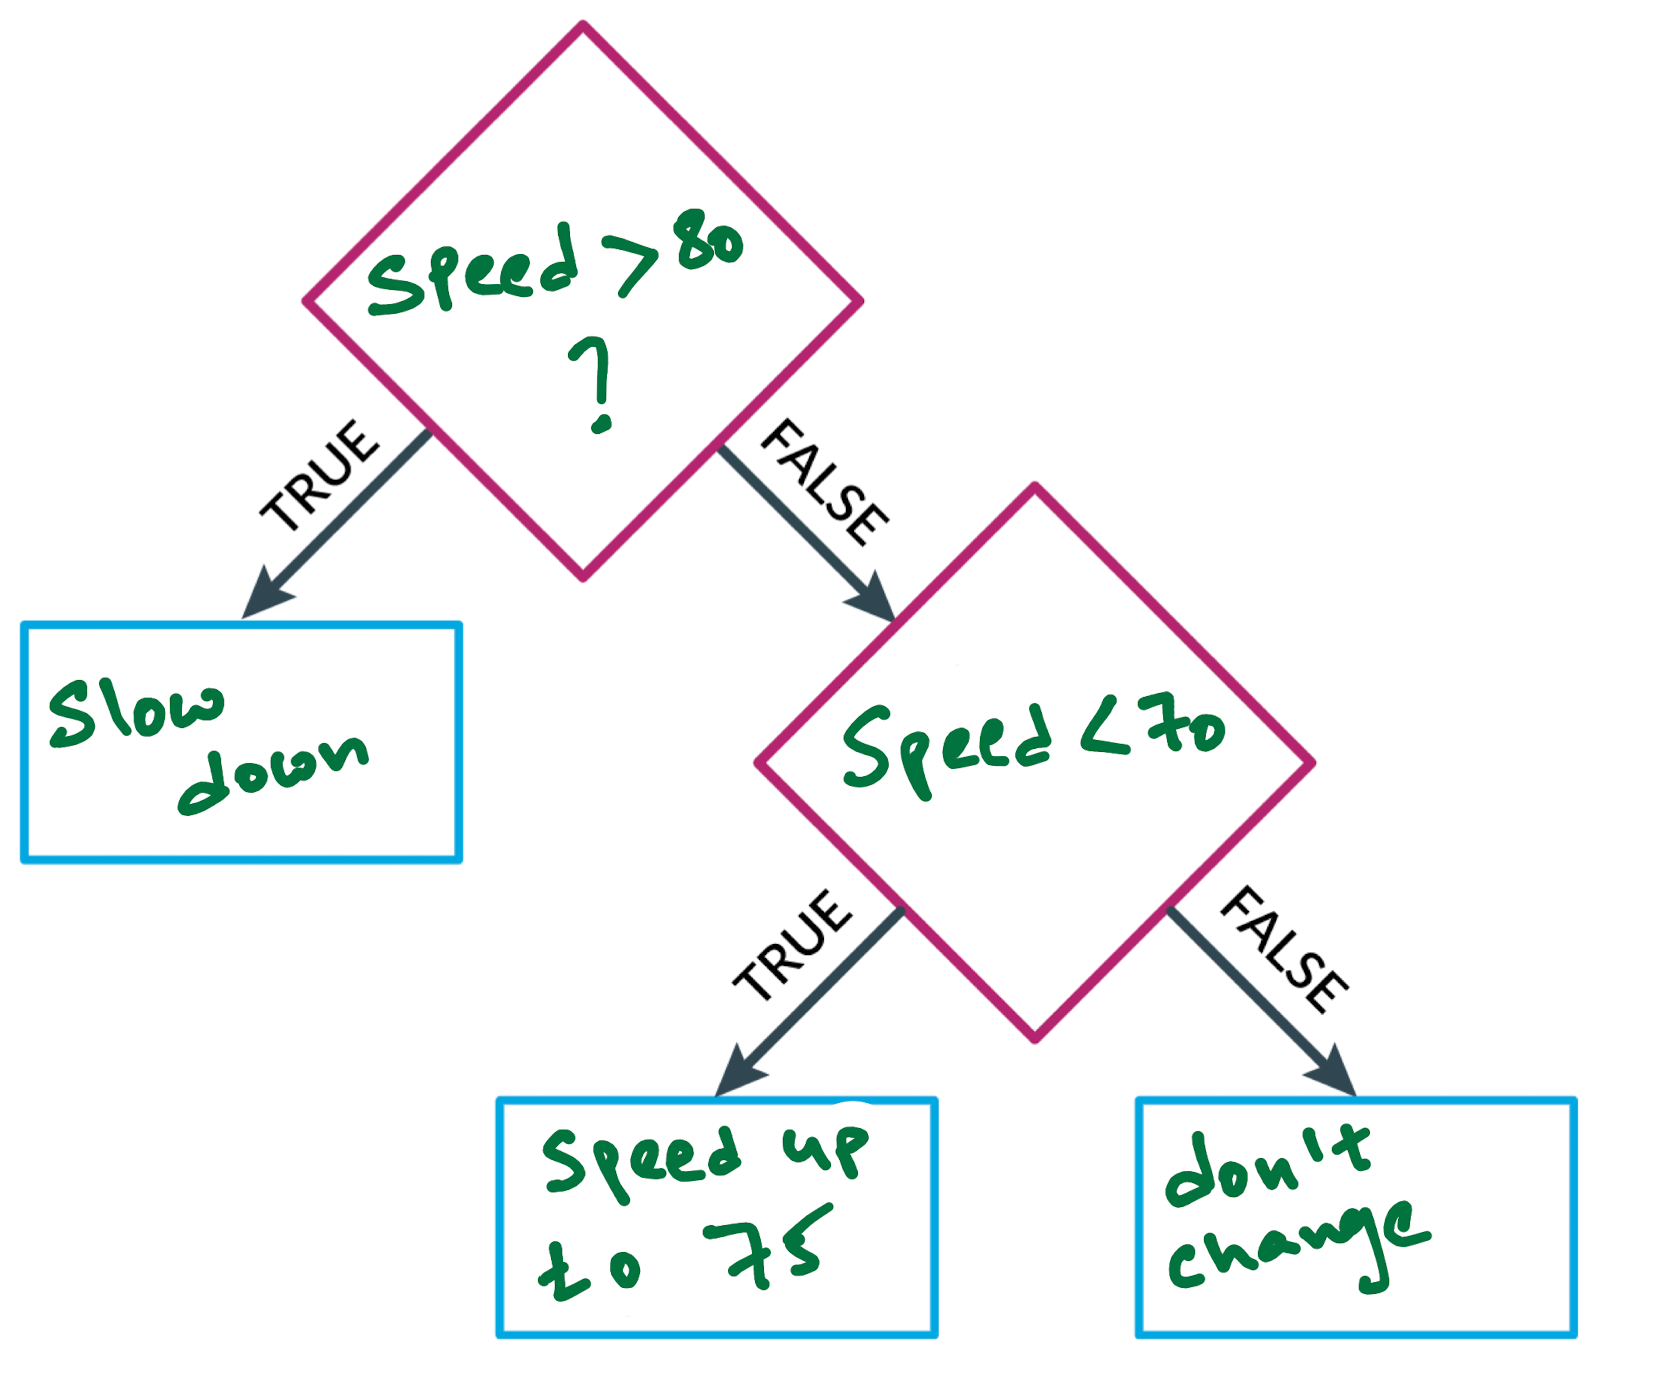 Speed > 80
?
TRUE
FALSE
Slow
down
Speed < 70
TRUE
FALSE
Speed up
to 75
don't
change